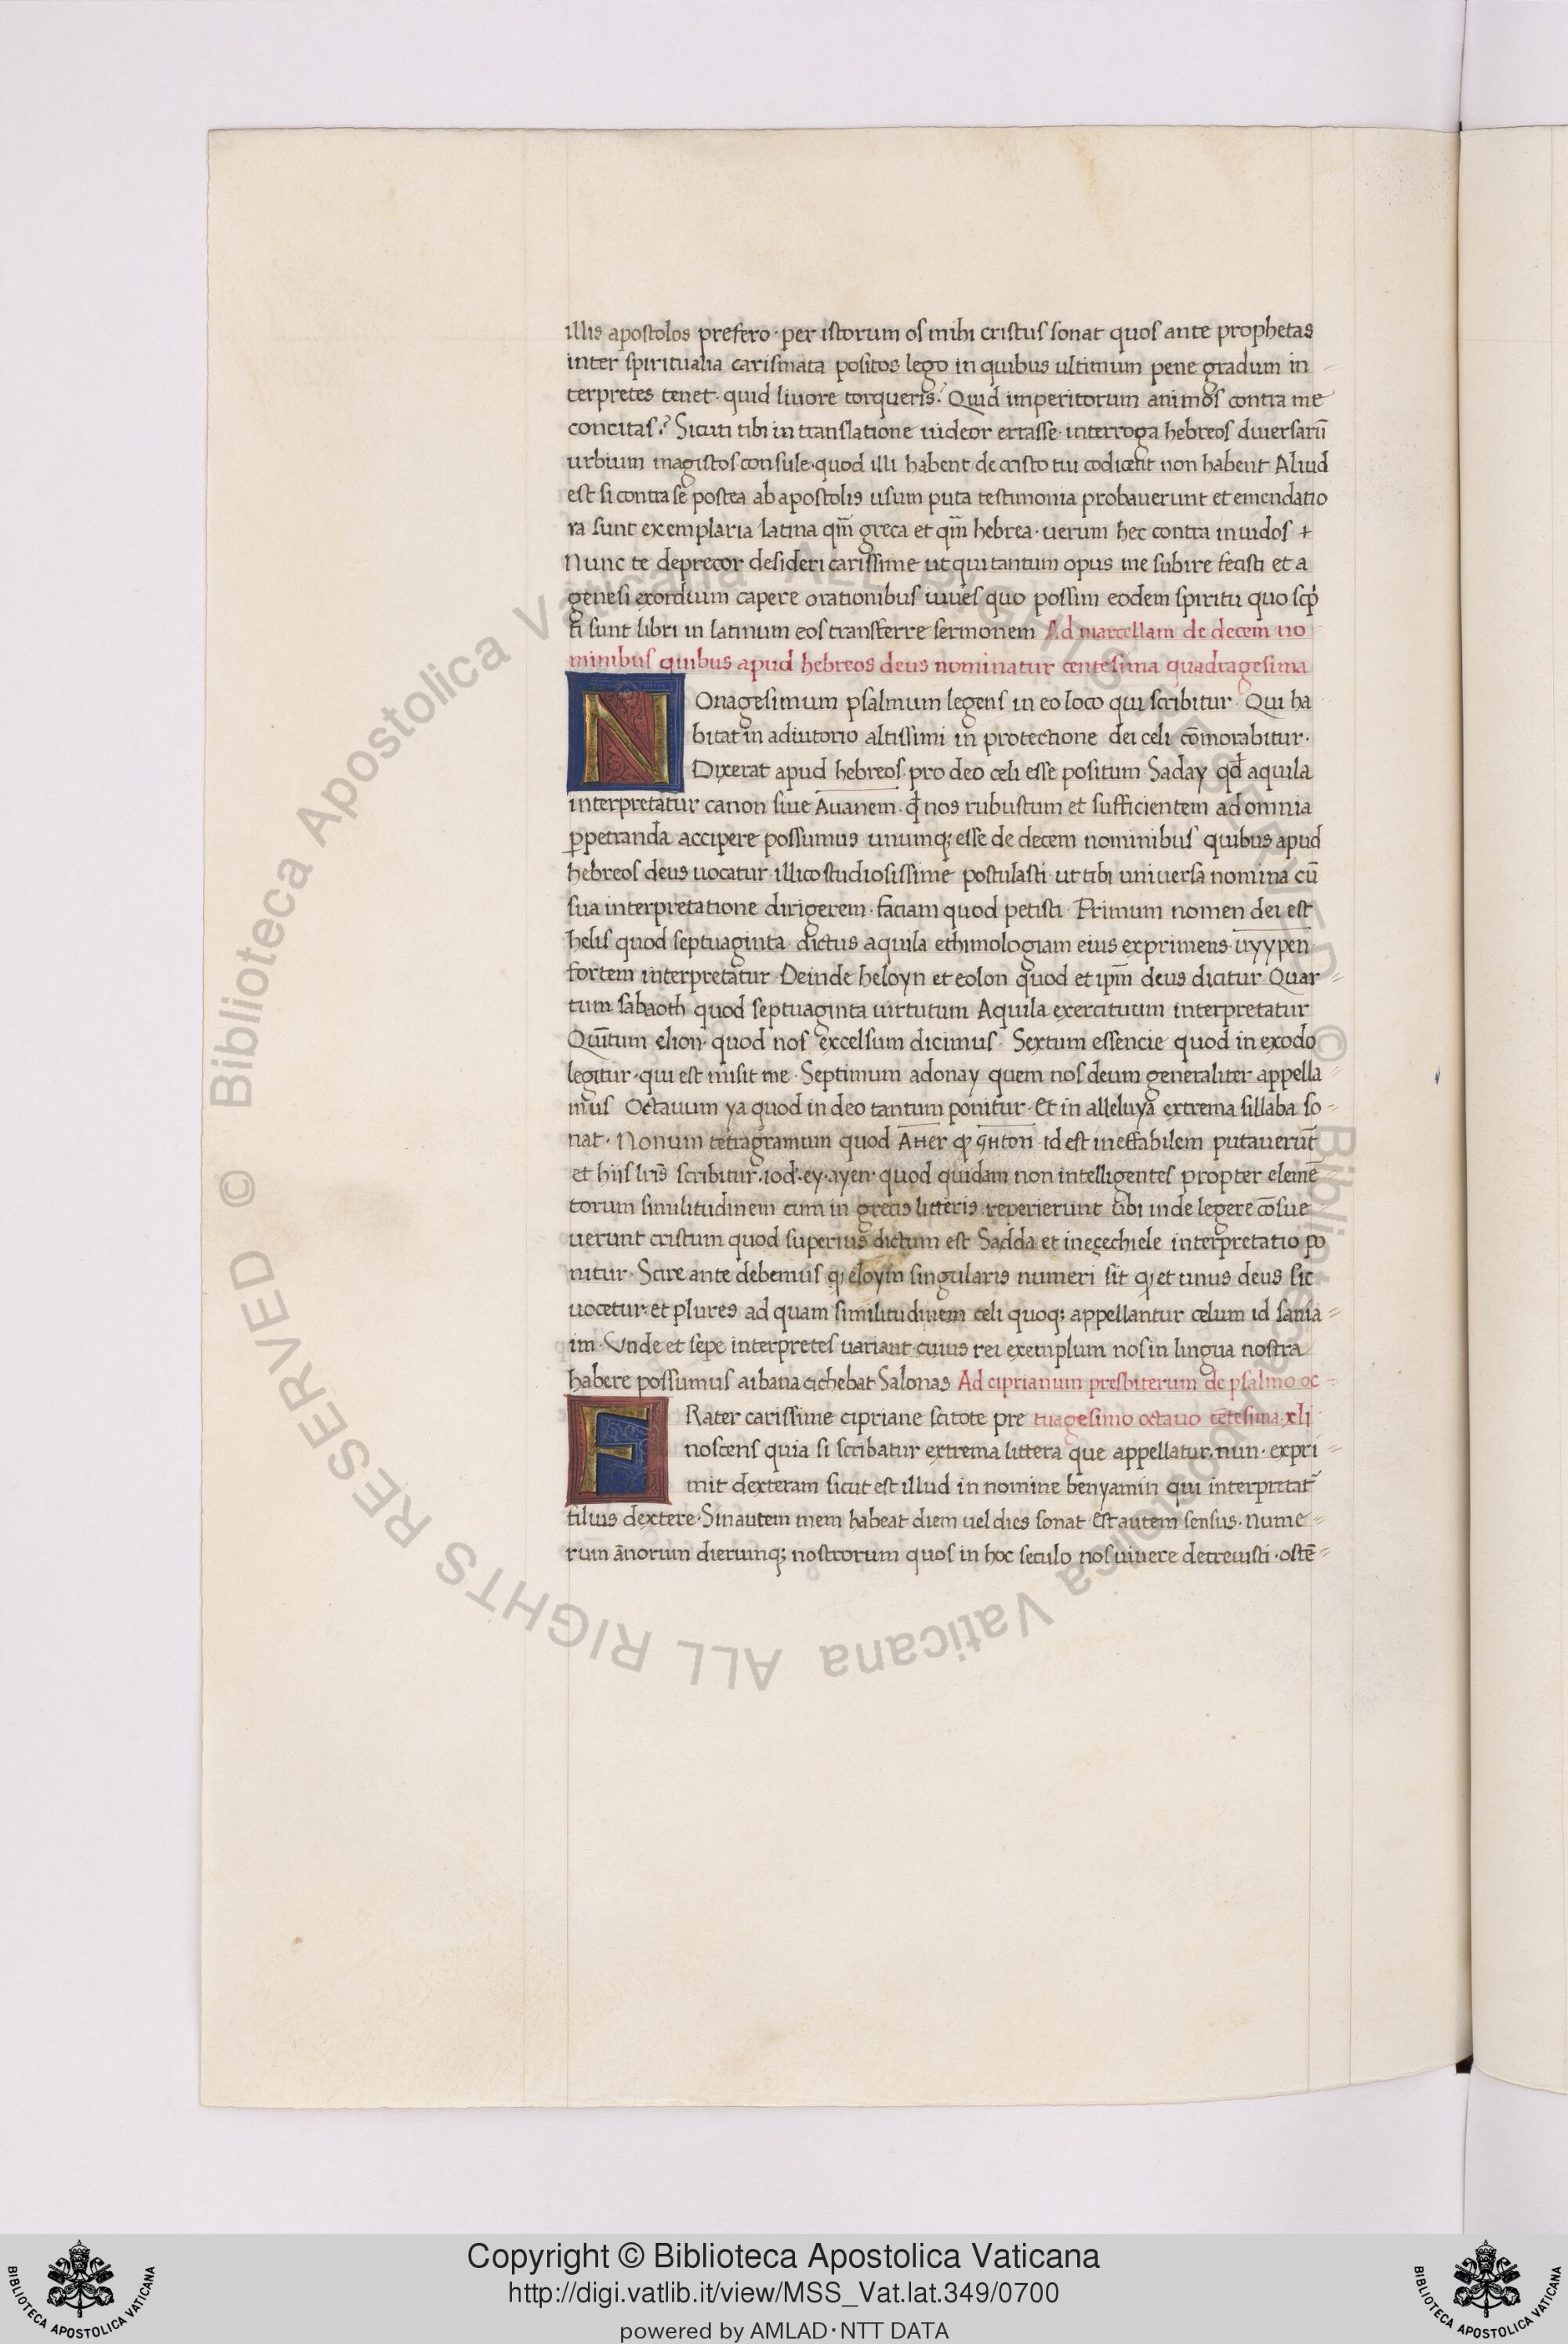 illis apostolos prefero · per istorum os mihi cristus sonat quos ante prophetas
inter spiritualia carismata positos lego in quibus ultimum pene gradum in
terpretes tenet · quid livore torqueris? Quid imperitorum animos contra me
concitas? Sicuti tibi in translatione videor errasse · interroga hebreos diversarū
urbium magistos consule · quod illi habent de cristo tui codices non habent Aliud
est si contra se postea ab apostolis usum puta testimonia probaverunt et emendatio
ra sunt exemplaria latina qm̄ greca et qm̄ hebrea · verum hec contra invidos +
Nunc te deprecor desideri carissime ut qui tantum opus me subire fecisti et a
genesi exordium capere orationibus iuves quo possim eodem spiritu quo scp̄
ti sunt libri in latinum eos transferre sermonem Ad marcellam de decem no
minibus quibus apud hebreos deus nominatur centesima quadragesima
NOnagesimum psalmum legens in eo loco qui scribitur · Qui ha
bitat in adiutorio altissimi in protectione dei celi cōmorabitur ·
Dixerat apud hebreos · pro deo celi esse positum Saday qd̄ aquila
interpretatur canon sive Avanem · qđ nos rubustum et sufficientem ad omnia
ꝑpetranda accipere possumus unumq; esse de decem nominibus quibus apud
hebreos deus vocatur · illico studiosissime postulasti ut tibi universa nomina cū
sua interpretatione dirigerem · faciam quod petisti Primum nomen dei est
helis quod septuaginta dictus aquila ethimologiam eius exprimens · uyypen
fortem interpretatur · Deinde heloyn et eolon quod et ipm̄ deus dicitur Quar
tum sabaoth quod septuaginta virtutum Aquila exercituum interpretatur
Quītum elion · quod nos excelsum dicimus · Sextum essencie quod in exodo
legitur · qui est misit me · Septimum adonay quem nos deum generaliter appella
mus Octavum ya quod in deo tantum ponitur · Et in alleluya extrema sillaba so
nat · Nonum tetragramum quod id est ineffabilem putaverūt
et hiis lr̄is scribitur · iod · ey · ayen · quod quidam non intelligentes propter eleme
torum similitudinem cum in grecis litteris reperierunt ubi inde legere cōsue
verunt cristum quod superius dictum est Sadda et in eçechiele interpretatio po
nitur · Scire ante debemus ꝙ eloym singularis numeri sit ꝙ et unus deus sic
vocetur · et plures ad quam similitudinem celi quoq; appellantur celum id sama
im · Unde et sepe interpretes variant cuius rei exemplum nos in lingua nostra
habere possumus aibana cichebat Salonas Ad ciprianum presbiterum de psalmo oc
FRater carissime cipriane scitote pre tuagesimo octavo cētesima xli
noscens quia si scribatur extrema littera que appellatur · nun · expri
mit dexteram sicut est illud in nomine benyamin qui interpretat̄
filius dextere · Sin autem mem habeat diem vel dies sonat · est autem sensus · nume
rum ānorum dierumq; nostrorum quos in hoc seculo nos vivere decrevisti · ostē
Copyright © Biblioteca Apostolica Vaticana
http://digi.vatlib.it/view/MSS_Vat.lat.349/0700
powered by AMLAD·NTT DATA